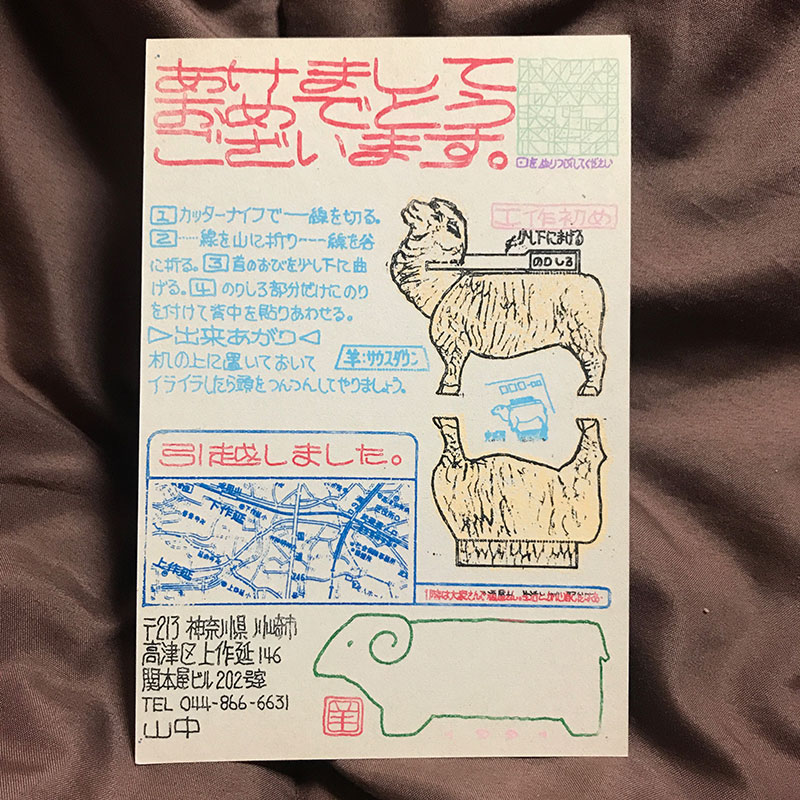 あけまして
おめでとう
ございます。
をぬりつぶしてください
1 カッターナイフで——線を切る。
2 ……線を山に折り----線を谷
に折る。3 首のおびを少し下に曲
げる。4 のりしろ部分だけにのり
を付けて背中を貼りあわせる。
▷出来あがり◁
机の上に置いておいて
イライラしたら頭をつんつんしてやりましょう。
羊:サウスダウン
工作初め
少し下にまげる
のりしろ
引越しました。
下作延
上作延
246
〒213 神奈川県 川崎市
高津区上作延146
関本屋ビル202号室
TEL 044-866-6631
山中
羊
1991